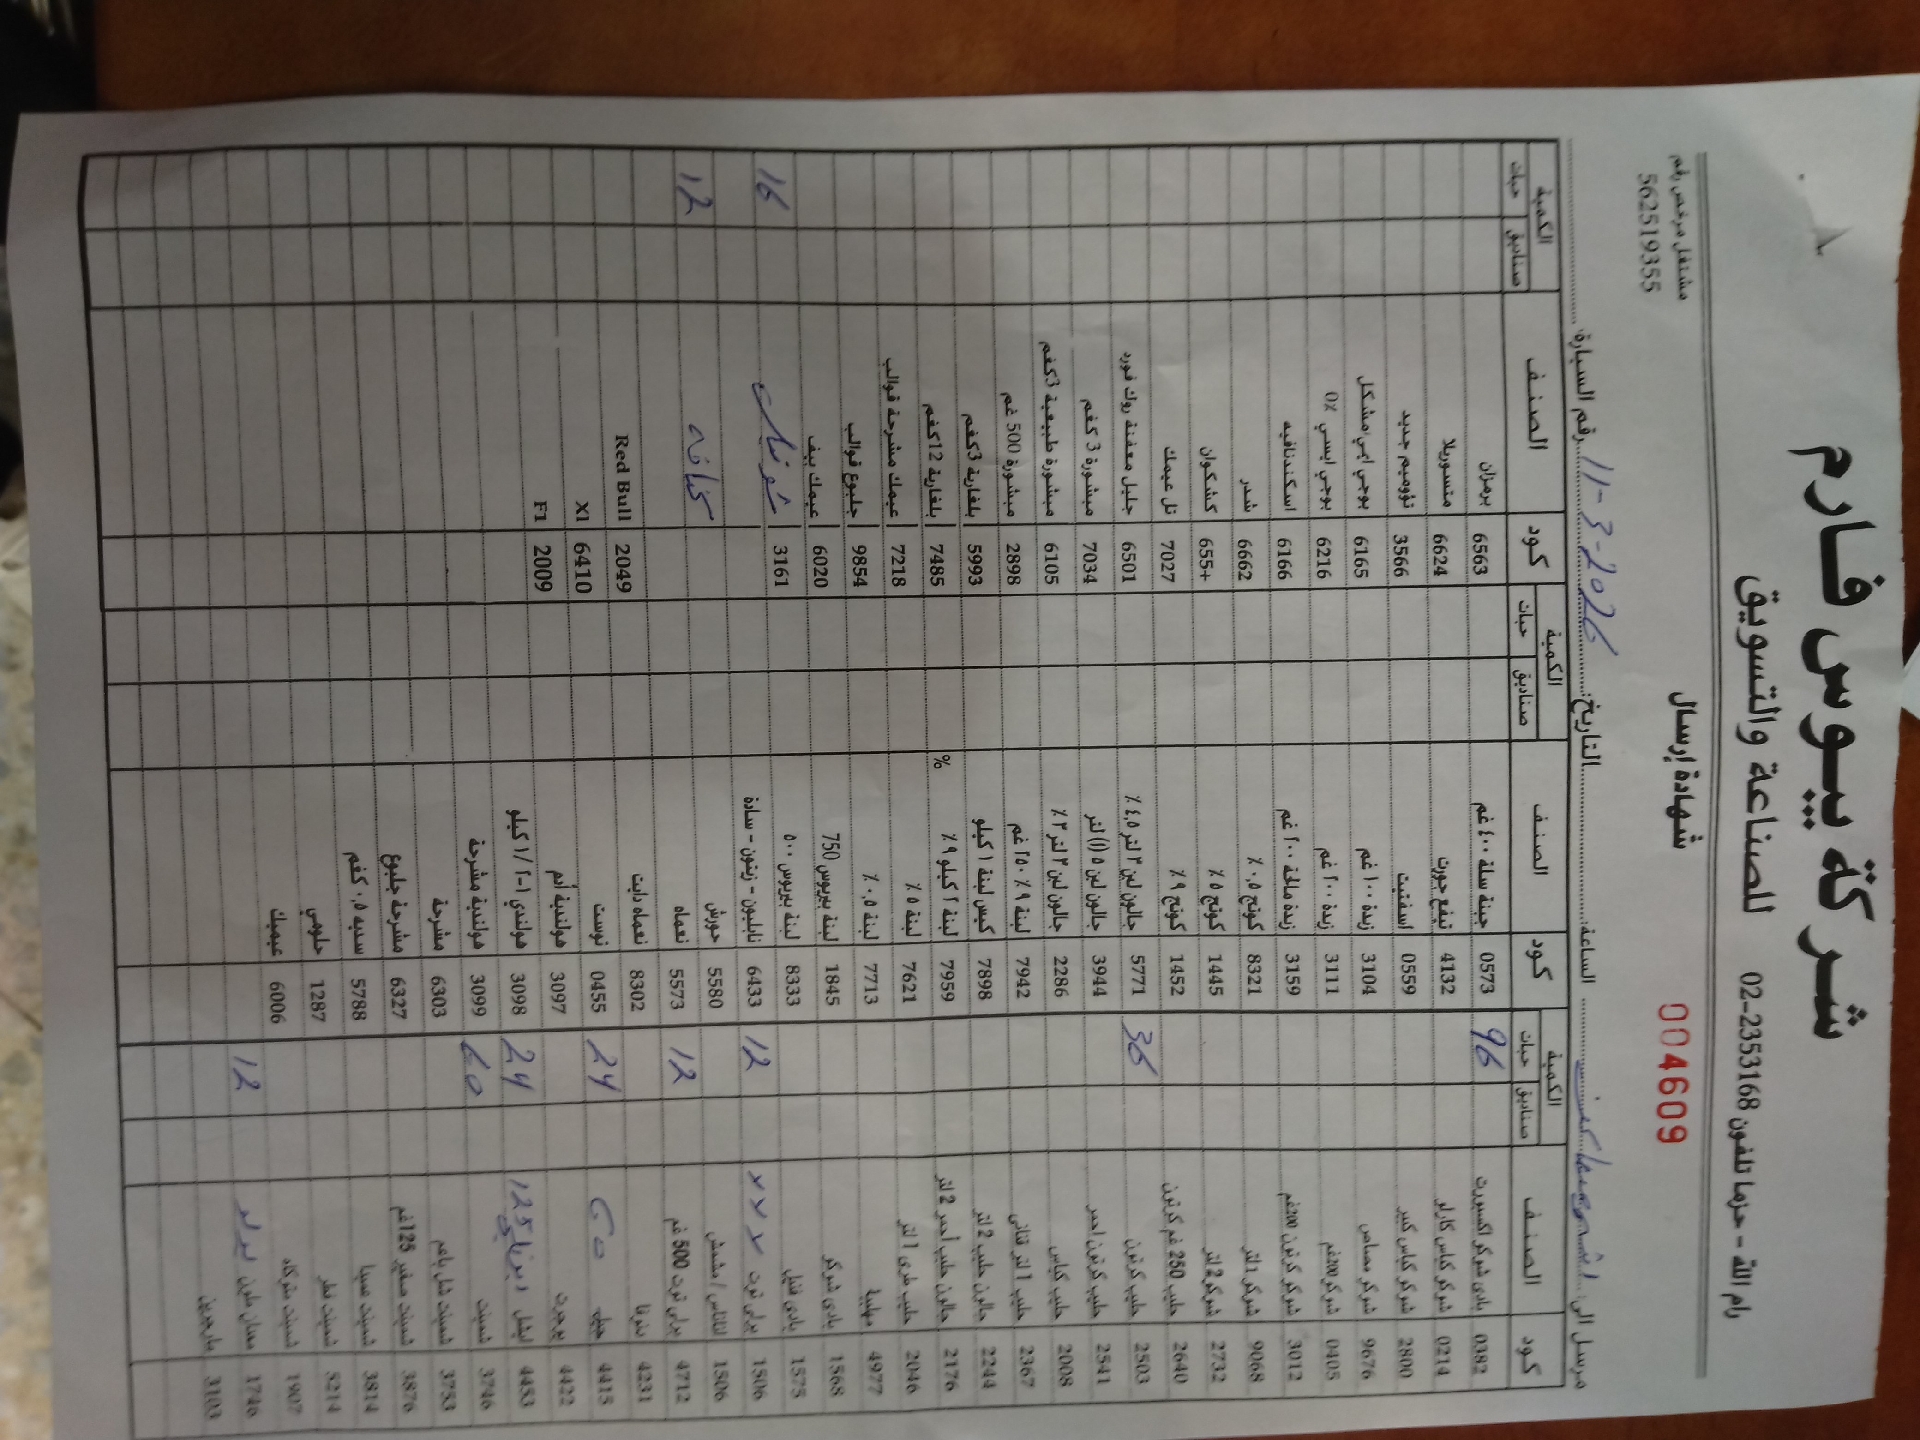 شركة بيوس فارم
للصناعة والتسويق
رام الله - حزما تلفون 02-2353168
مشتغل مرخص رقم
562519355
شهادة إرسال
004609
مرسل الى: الساعة: التاريخ: 11-3-2026 رقم السيارة:
كود الصنف الكمية صناديق حبات كود الصنف الكمية صناديق حبات كود الصنف الكمية صناديق حبات
0382 بادي شوكو اكسبورت 96 0573 جبنة سلة ٤٠٠ غم 6563 برمزان
0214 شوكو كباس كارلو 4132 تيفع جورت 6624 متسوريلا
2800 شوكو كباس كبير 0559 اسفتيت 3566 تؤوميم جديد
9676 شوكو مصاص 3104 زبدة ١٠٠ غم 6165 يوجي ابي/مشكل
0405 شوكو 200غم 3111 زبدة ٢٠٠ غم 6216 يوجي ايسي ٪0
3012 شوكو كرتون 200غم 3159 زبدة مالحة ٢٠٠ غم 6166 اسكندنافيه
9068 شوكو 1 لتر 8321 كوتج ٠,٥ ٪ 6662 شدر
2732 شوكو 2 لتر 1445 كوتج ٥ ٪ 655+ كشكوان
2640 حليب 250 غم كرتون 1452 كوتج ٩ ٪ 7027 تل عيمك
2503 حليب كرتون 36 5771 جالون لبن ٣ لتر ٤,٥ ٪ 6501 جليل معفنة روك فورد
2541 حليب كرتون احمر 3944 جالون لبن ٥ (١) لتر 7034 مبشورة 3 كغم
2008 حليب كباس 2286 جالون لبن ٣ لتر ٣ ٪ 6105 مبشورة طبيعية 3كغم
2367 حليب 1 لتر قناني 7942 لبنة ٩ ٪ ٢٥٠ غم 2898 مبشورة 500 غم
2244 جالون حليب 2 لتر 7898 كيس لبنة ١ كيلو 5993 بلغارية 3كغم
2176 جالون حليب أحمر 2 لتر 7959 لبنة ٢ كيلو ٩ ٪ % 7485 بلغارية 12كغم
2046 حليب طري 1 لتر 7621 لبنة ٥ ٪ 7218 عيمك مشرحة قوالب
4977 مهلبية 7713 لبنة ٠,٥ ٪ 9854 جلبوع قوالب
1568 يادي شوكو 1845 لبنة بيريوس 750 6020 عيمك بيف
1575 يادي فنيل 8333 لبنة بيريوس ٥٠٠ 3161 16
1506 برلي توت 12 6433 نابليون - زيتون - سادة
1506 اناناس / مشمش 5580 حورش كنافه 12
4712 برلي توت 500 غم 12 5573 نعماه
4231 دنونا 8302 نعماه دايت 2049 Red Bull
4415 جيلي 24 0455 نوست 6410 Xl
4422 يوجرت 3097 هولندية أدم 2009 F1
4453 ايشل 125 24 3098 هولندي ١-١/٢ كيلو
3746 شمينت 3099 هولندية مشرحة
3753 شمينت شل باعم 6303 مشرحة
3876 شمينت صغير 125غم 6327 مشرحة جلبوع
3814 شمينت عميا 5788 سديه ٠,٥ كغم
5214 شمينت فطر 1287 حلومي
1907 شمينت متوكاه 6006 عيميك
1746 معدان ملون 12
3103 مارجرين